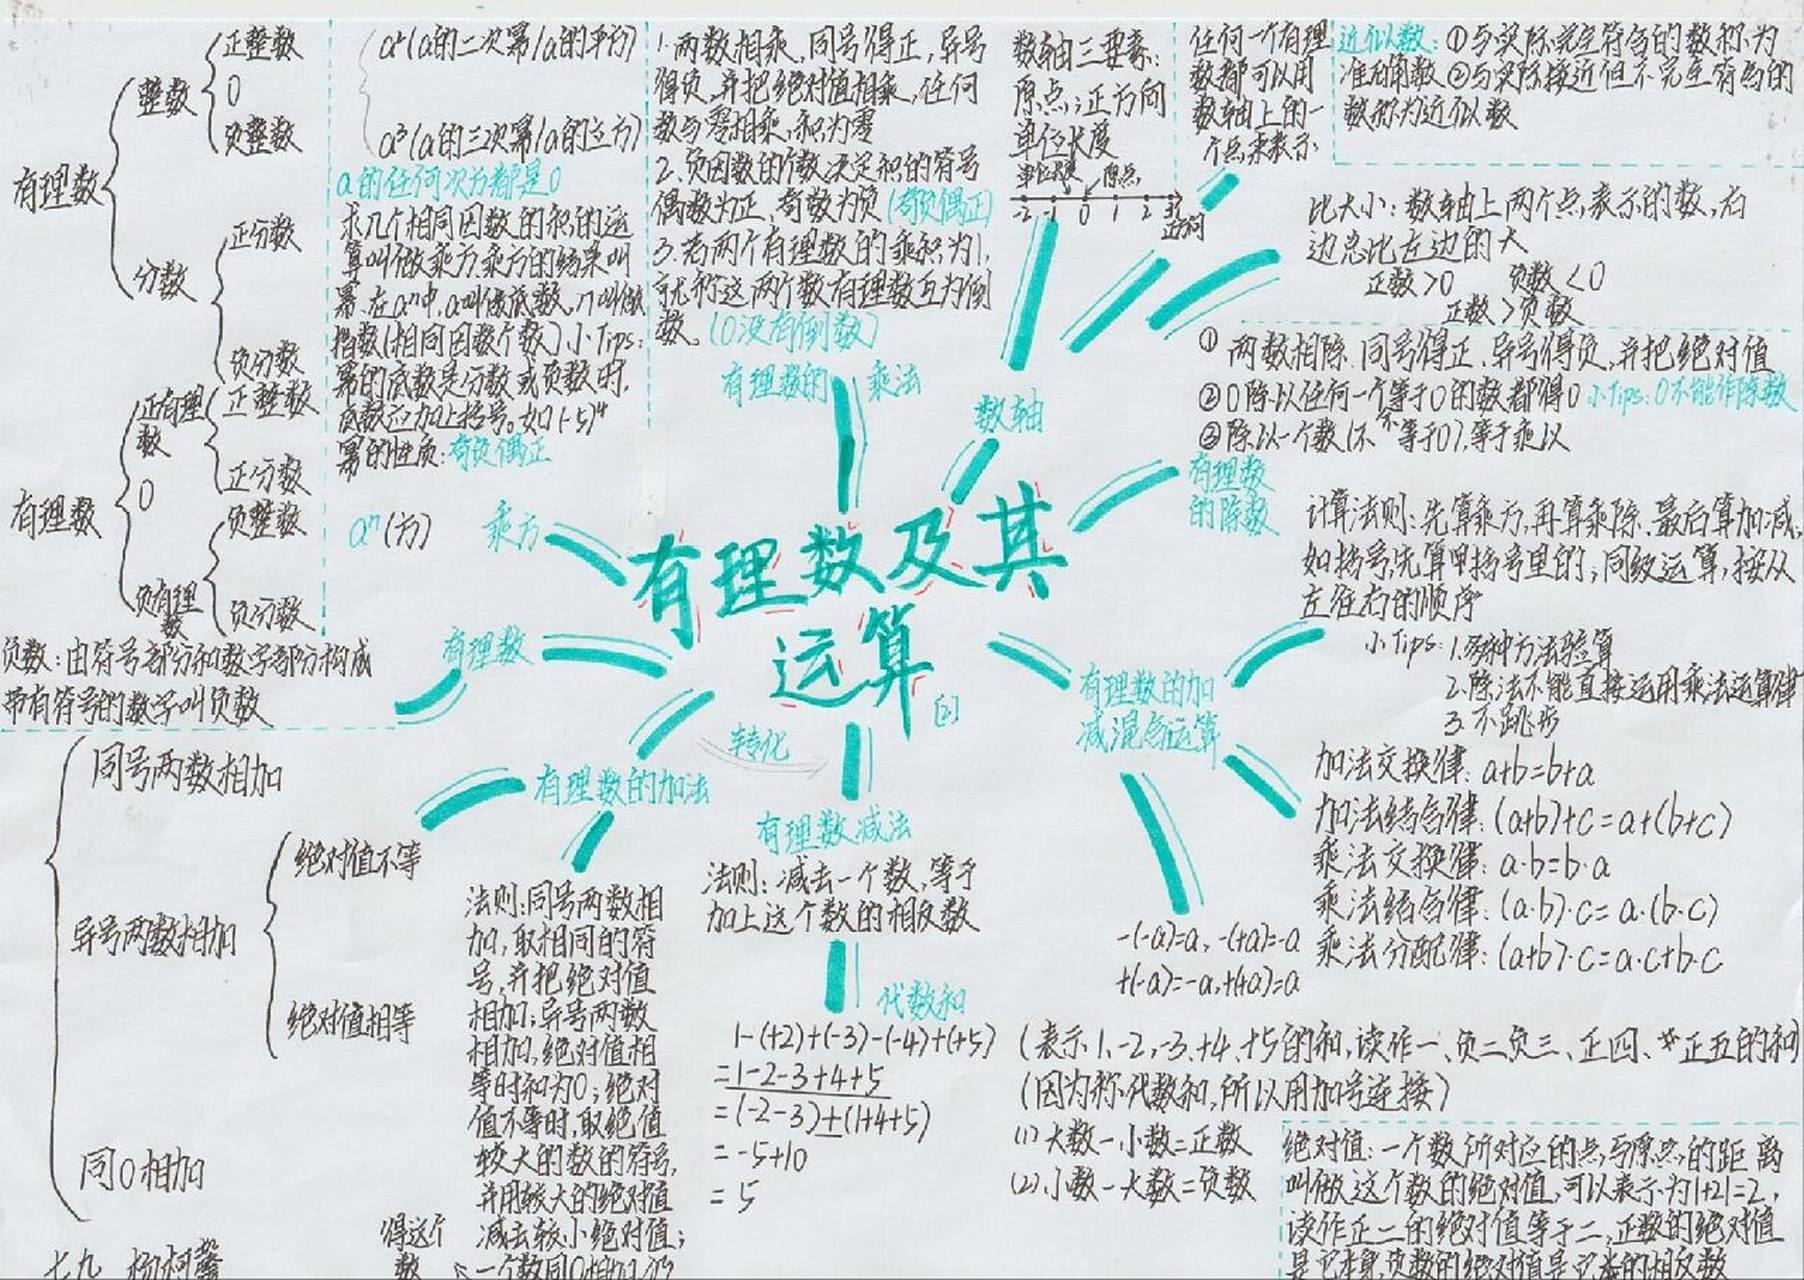 有理数
整数
正整数
0
负整数
分数
正分数
负分数
有理数
正有理
数
正整数
正分数
0
负有理
数
负整数
负分数
负数：由符号部分和数字部分构成
带有符号的数字叫负数
a²(a的二次幂/a的平方)
a³(a的三次幂/a的立方)
a的任何次方都是0
求几个相同因数的积的运
算叫做乘方.乘方的结果叫
幂.在aⁿ中,a叫做底数,n叫做
指数(相同因数个数).小Tips:
幂的底数是分数或负数时,
底数应加上括号。如(-5)⁴
幂的性质:奇负偶正
aⁿ(方)
乘方
1.两数相乘,同号得正,异号
得负,并把绝对值相乘,任何
数与零相乘,积为零
2.负因数的个数决定积的符号
偶数为正,奇数为负(奇负偶正)
3.若两个有理数的乘积为1,
就称这两个数有理数互为倒
数。(0没有倒数)
有理数的 乘法
数轴三要素:
原点;正方向
单位长度
单位长度 原点
-2 -1 0 1 2 3
正方向
数轴
任何一个有理
数都可以用
数轴上的一
个点来表示
近似数:①与实际完全符合的数称为
准确数②与实际接近但不完全符合的
数称为近似数
比大小:数轴上两个点表示的数,右
边总比左边的大
正数>0 负数<0
正数>负数
① 两数相除.同号得正.异号得负,并把绝对值
②0除以任何一个等于0的数都得0 小Tips:0不能作除数
不
③除以一个数(不等于0),等于乘以
有理数
的除数
有理数及其
运算
[2]
计算法则:先算乘方,再算乘除.最后算加减,
如括号,先算甲括号里的;同级运算,按从
左往右的顺序
小Tips:1.多种方法验算
2.除法不能直接运用乘法运算律
3.不跳步
有理数的加
减混合运算
加法交换律:a+b=b+a
加法结合律:(a+b)+c=a+(b+c)
乘法交换律:a·b=b·a
乘法结合律:(a·b)·c=a·(b·c)
乘法分配律:(a+b)·c=a·c+b·c
-(-a)=a,-(+a)=-a
+(-a)=-a,+(+a)=a
有理数
有理数的加法
转化
有理数减法
同号两数相加
异号两数相加
绝对值不等
绝对值相等
同0相加
法则:同号两数相
加,取相同的符
号,并把绝对值
相加;异号两数
相加,绝对值相
等时和为0;绝对
值不等时,取绝值
较大的数的符号,
并用较大的绝对值
减去较小绝对值;
一个数同0相加,仍
得这个
数
法则:减去一个数,等于
加上这个数的相反数
代数和
1-(+2)+(-3)-(-4)+(+5)
=1-2-3+4+5
=(-2-3)+(1+4+5)
=-5+10
=5
(表示1,-2,-3,+4,+5的和,读作一、负二负三、正四、正五的和)
(因为称代数和,所以用加号连接)
(1)大数-小数=正数
(2)小数-大数=负数
绝对值:一个数所对应的点与原点的距离
叫做这个数的绝对值,可以表示为|+2|=2,
读作正二的绝对值等于二,正数的绝对值
是它本身,负数的绝对值是它的相反数
七九